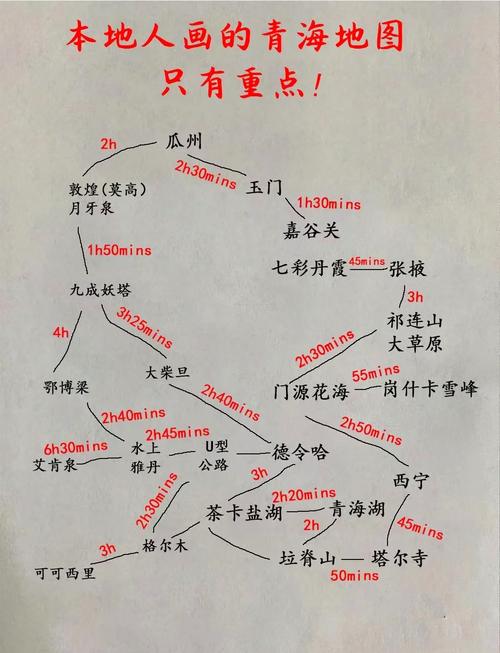 本地人画的青海地图
只有重点!
2h
瓜州
2h30mins
敦煌(莫高)
月牙泉
玉门
1h30mins
嘉谷关
1h50mins
七彩丹霞
45mins
张掖
九成妖塔
3h
3h25mins
祁连山
大草原
4h
2h30mins
55mins
大柴旦
鄂博梁
门源花海
岗什卡雪峰
2h40mins
2h40mins
2h50mins
6h30mins
2h45mins
艾肯泉
水上
雅丹
U型
公路
德令哈
3h
西宁
2h30mins
2h20mins
茶卡盐湖
青海湖
45mins
2h
3h
格尔木
可可西里
垃脊山
塔尔寺
50mins